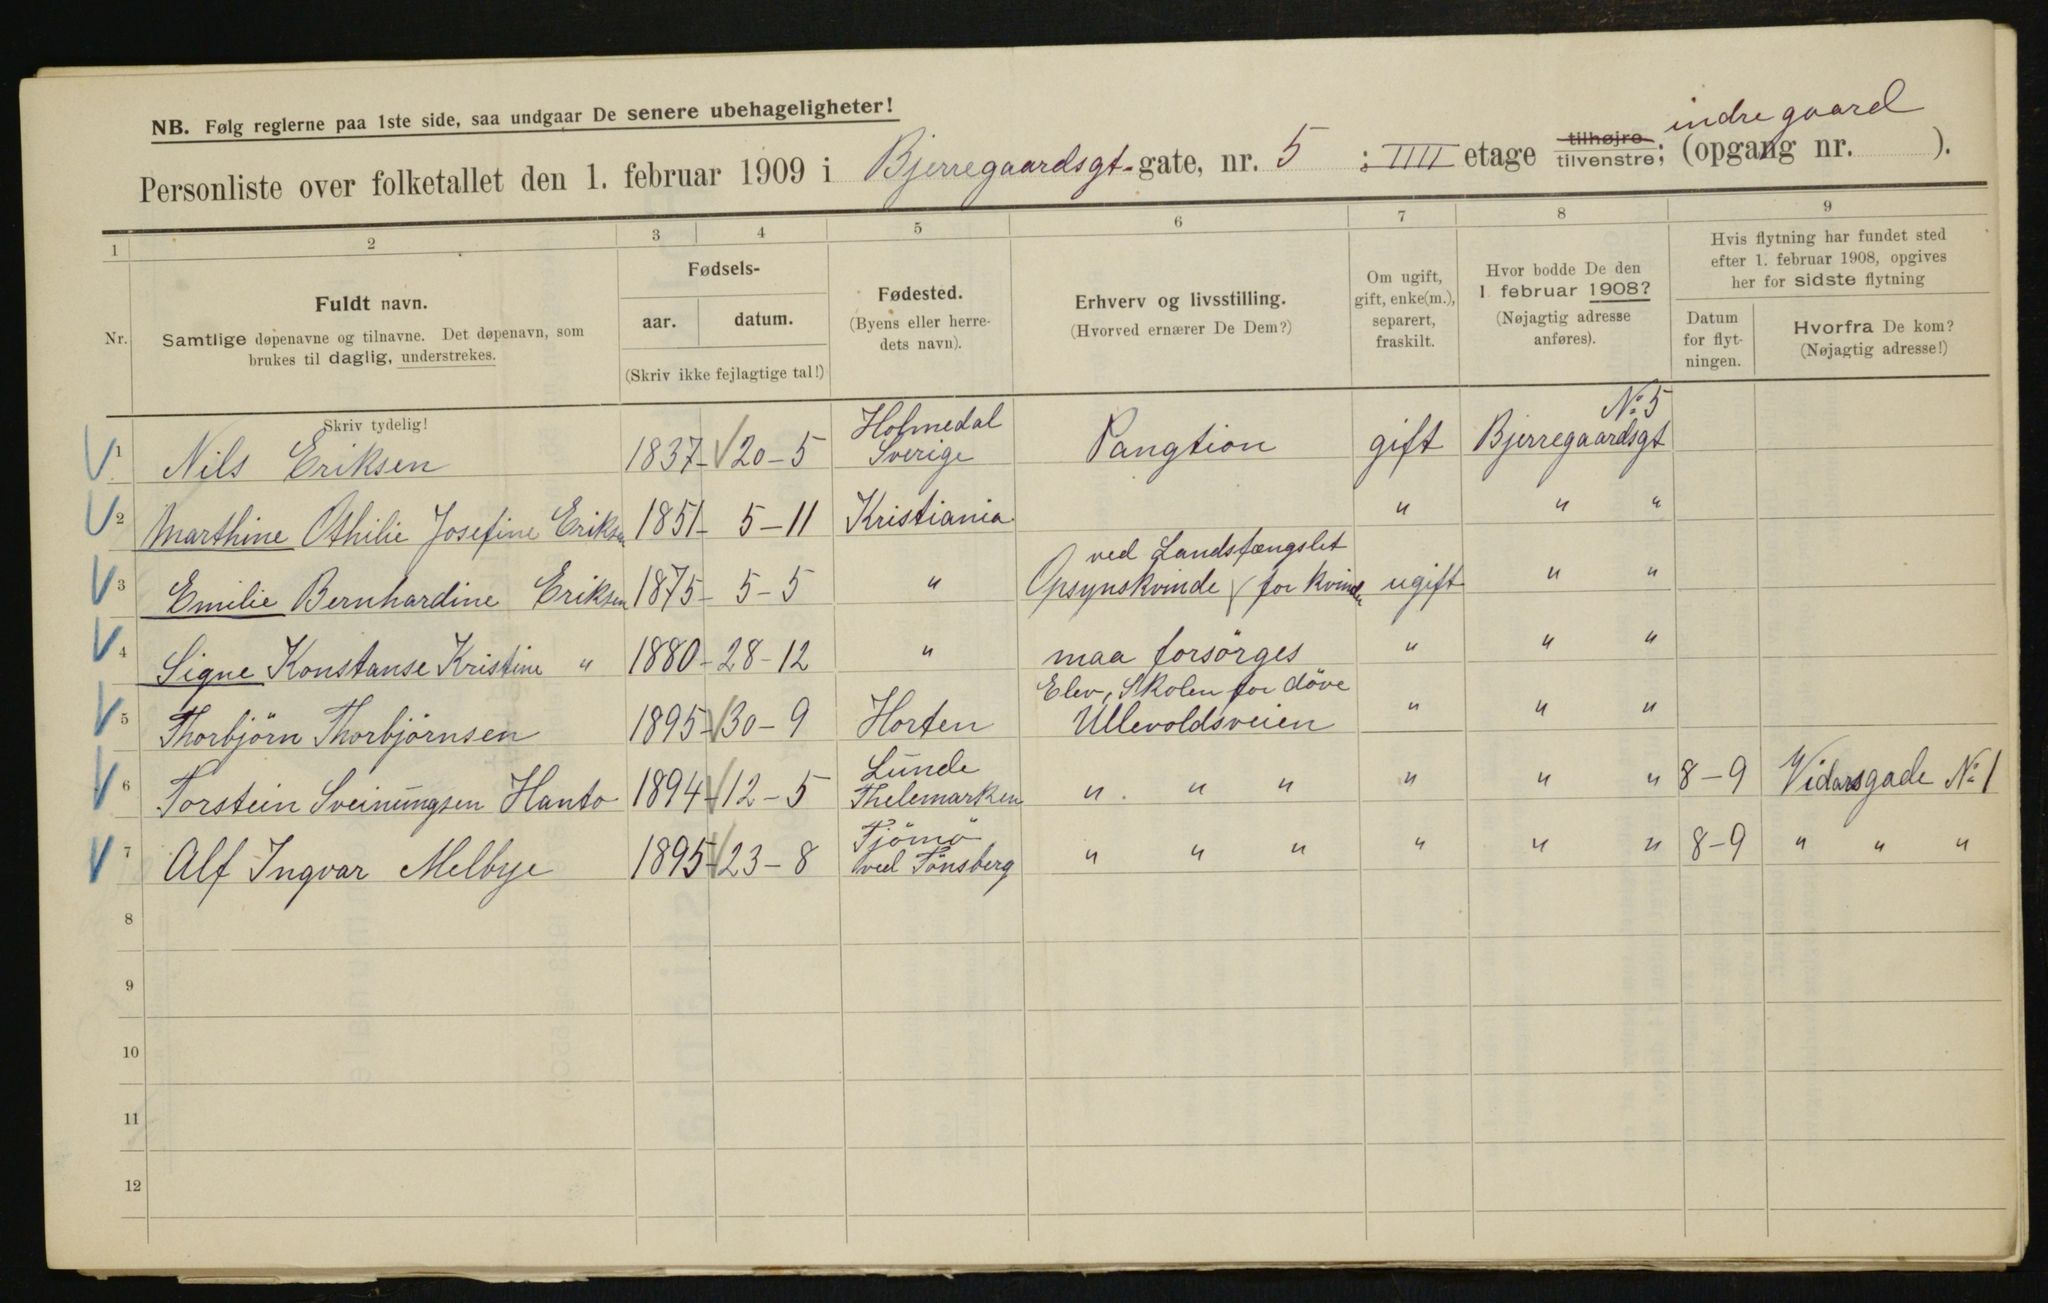 NB. Følg reglerne paa 1ste side, saa undgaar De senere ubehageligheter!
indregaard
Personliste over folketallet den 1. februar 1909 i Bjerregaardsgt-gate, nr. 5 : IIII etage tilhøjre tilvenstre; (opgang nr. ).
1 2 3 4 5 6 7 8 9
Nr.
Fuldt navn.
Samtlige døpenavne og tilnavne. Det døpenavn, som
brukes til daglig, understrekes.
Fødsels-
aar. datum.
(Skriv ikke fejlagtige tal!)
Fødested.
(Byens eller herre-
dets navn).
Erhverv og livsstilling.
(Hvorved ernærer De Dem?)
Om ugift,
gift, enke(m.),
separert,
fraskilt.
Hvor bodde De den
1 februar 1908?
(Nøjagtig adresse
anføres).
Hvis flytning har fundet sted
efter 1. februar 1908, opgives
her for sidste flytning
Datum
for flyt-
ningen.
Hvorfra De kom?
(Nøjagtig adresse!)
Skriv tydelig!
Holmedal No 5
1 Nils Eriksen 1837- 20-5 Sverige Pangtion gift Bjerregaardsgt
2 Marthine Othilie Josefine Eriksen 1851- 5-11 Kristiania " " "
ved Landsfængslet
3 Emilie Bernhardine Eriksen 1875- 5-5 " Opsynskvinde for kvinder ugift " "
4 Signe Konstanse Kristine " 1880- 28-12 " maa forsörges " " "
Elev, Skolen for döve
5 Thorbjörn Thorbjörnsen 1895- 30-9 Horten Ullevoldsveien " " "
Lunde
6 Torstein Sveinungsen Hanto 1894- 12-5 Thelemarken " " " " " " 8-9 Vidarsgade No 1
Tjömö
7 Alf Ingvar Melbye 1895- 23-8 ved Tönsberg " " " " " " 8-9 " " "
8
9
10
11
12